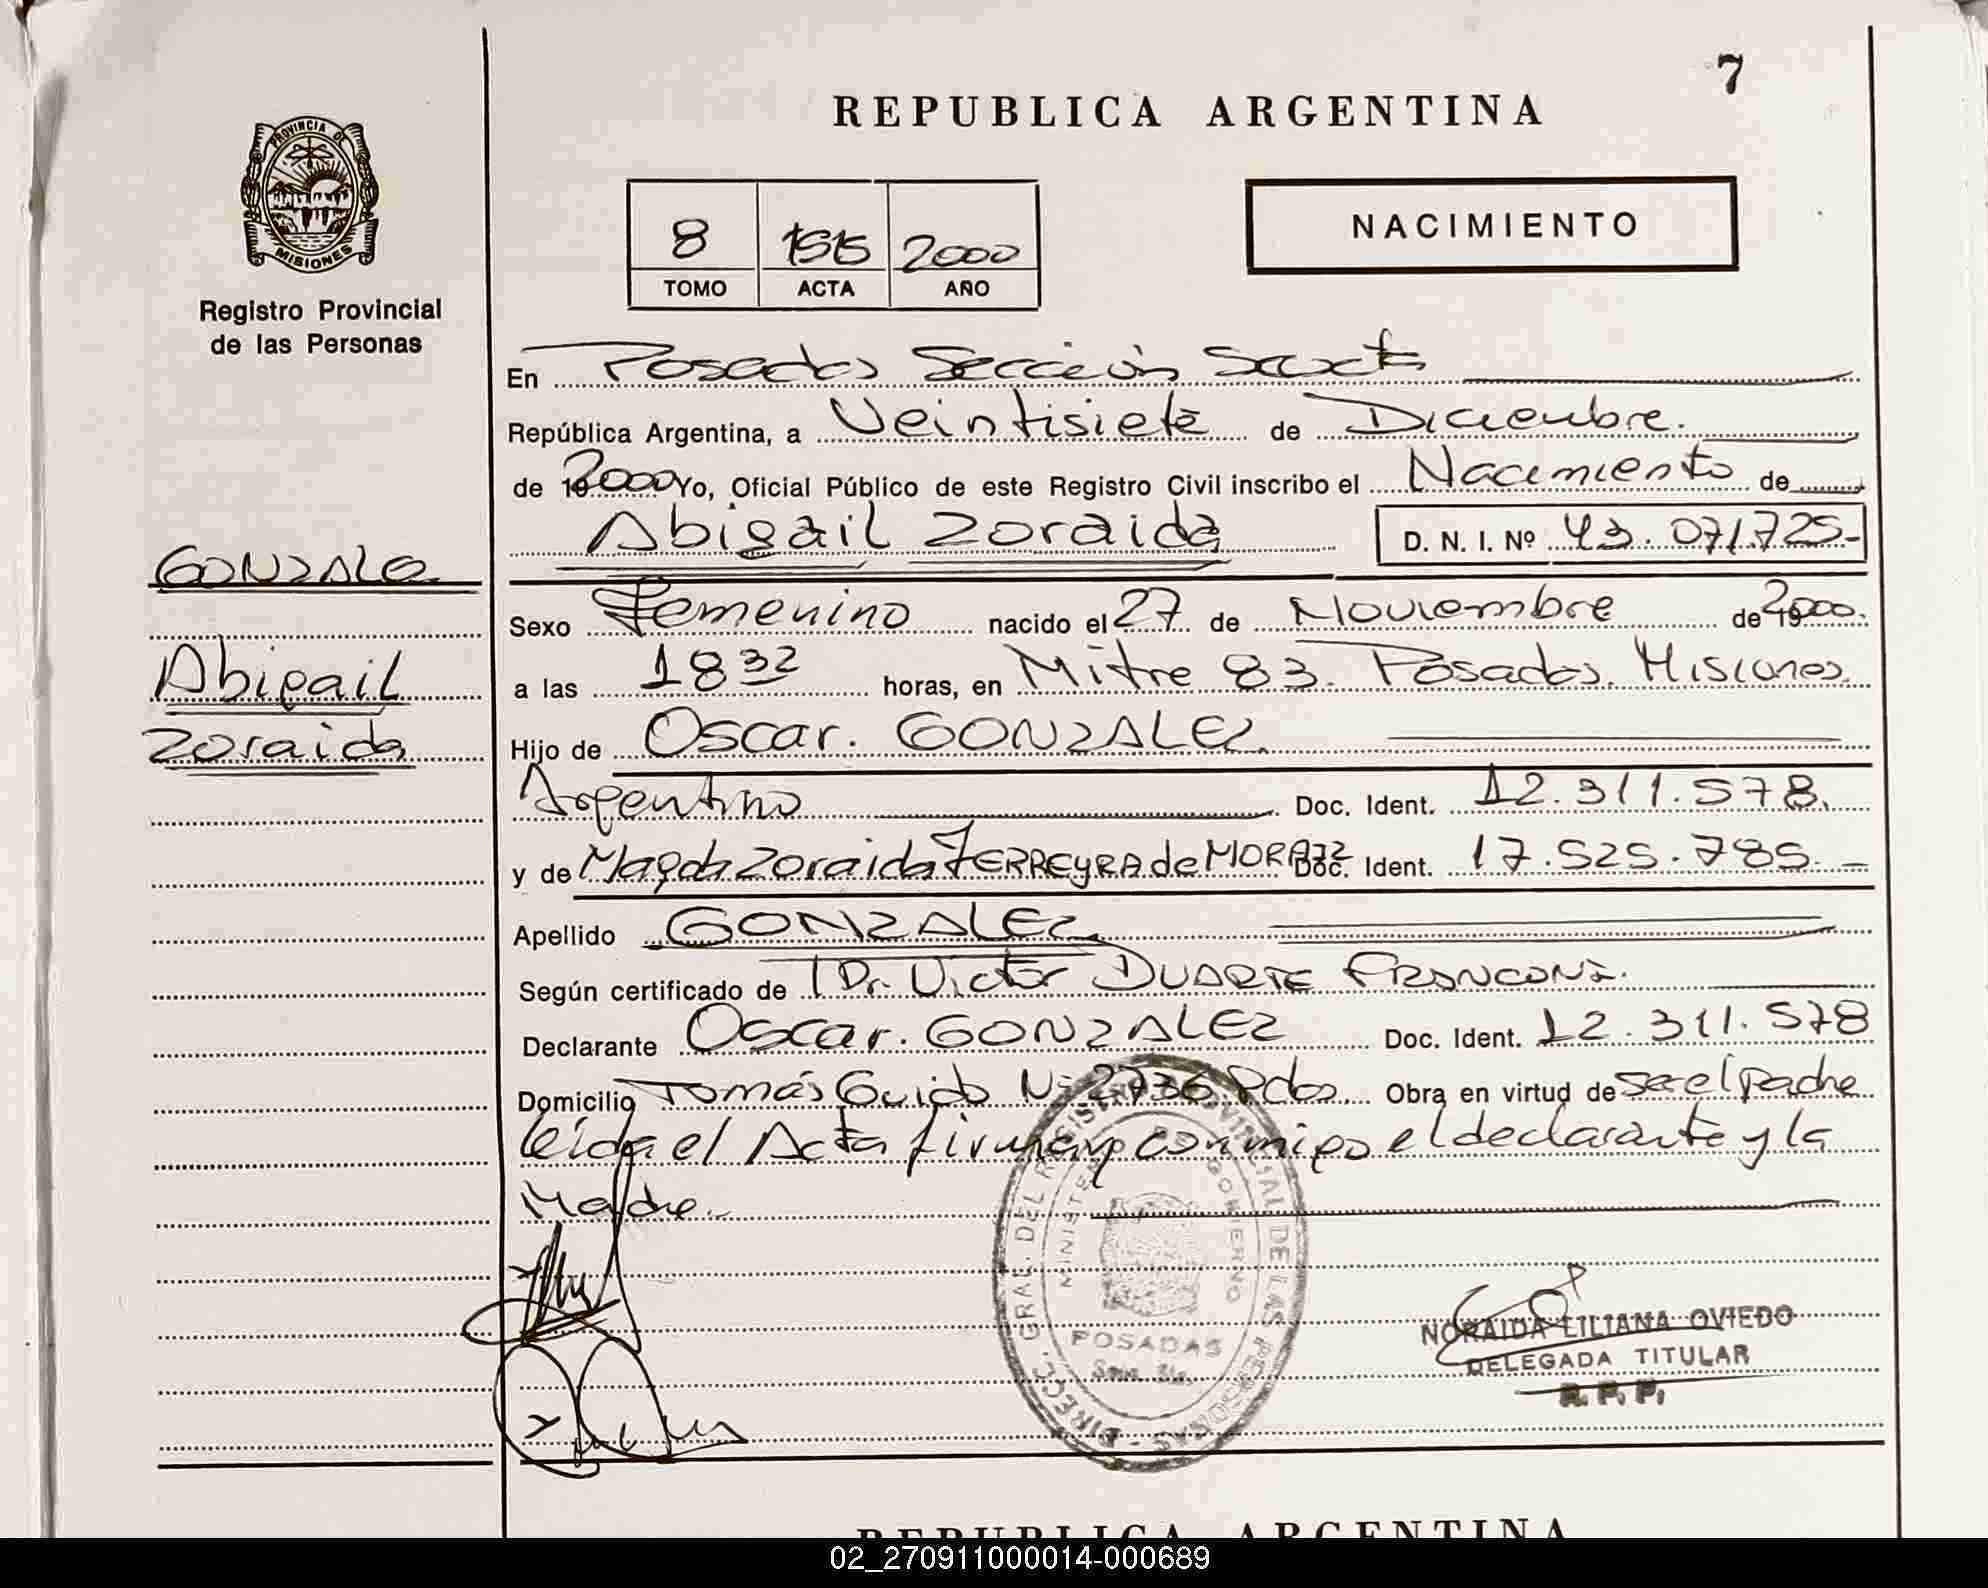 7
REPUBLICA ARGENTINA
PROVINCIA DE MISIONES
Registro Provincial
de las Personas
8 1515 2000
TOMO ACTA AÑO
NACIMIENTO
En Posadas Sección Sexta
República Argentina, a Veintisiete de Diciembre.
de 19 2000 Yo, Oficial Público de este Registro Civil inscribo el Nacimiento de
Abigail Zoraida D. N. I. Nº 43.071.725-
GONZALEZ
Abigail
Zoraida
Sexo Femenino nacido el 27 de Noviembre de 19 2000.
a las 18 32 horas, en Mitre 83. Posadas. Misiones.
Hijo de Oscar. GONZALEZ
Argentino Doc. Ident. 12.311.578.
y de Magda Zoraida FERREYRA de MORAIZ Doc. Ident. 17.525.785.-
Apellido GONZALEZ
Según certificado de Dr. Victor DUARTE
Declarante Oscar. GONZALEZ Doc. Ident. 12.311.578
Domicilio Tomás Guido Nº 2736 Pdas. Obra en virtud de ser el padre
leída el Acta firman conmigo el declarante y la
Madre.
DIRECC. GRAL. DEL REGISTRO PROVINCIAL DE LAS PERSONAS
MINISTERIO DE GOBIERNO
POSADAS
NORAIDA LILIANA OVIEDO
DELEGADA TITULAR
R. P. P.
REPUBLICA ARGENTINA
02_270911000014-000689